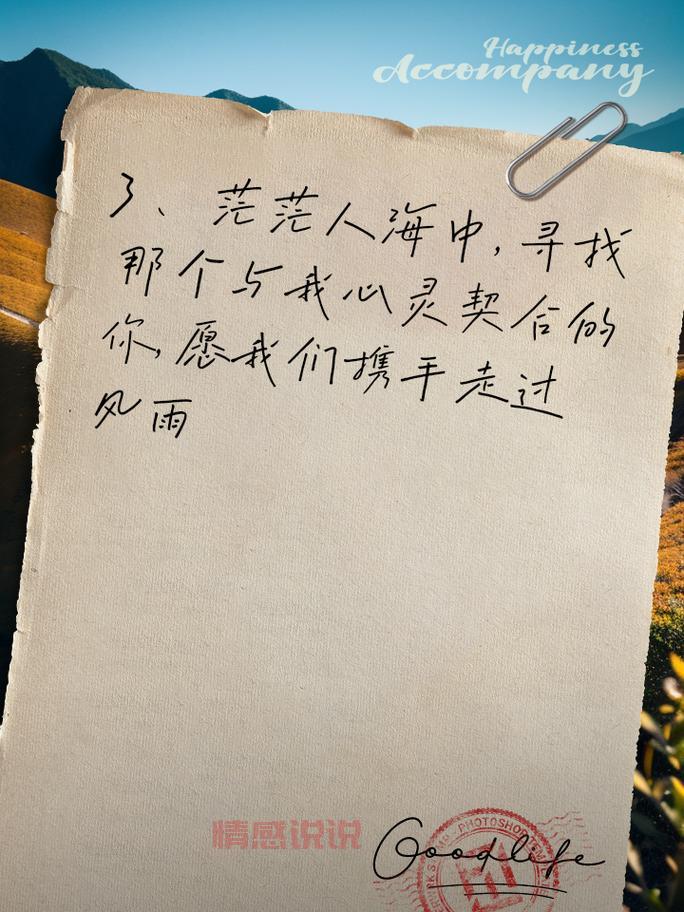 Happiness
Accompany
3、茫茫人海中,寻找
那个与我心灵契合的
你,愿我们携手走过
风雨
情感说说
Good life
PHOTOSHOP